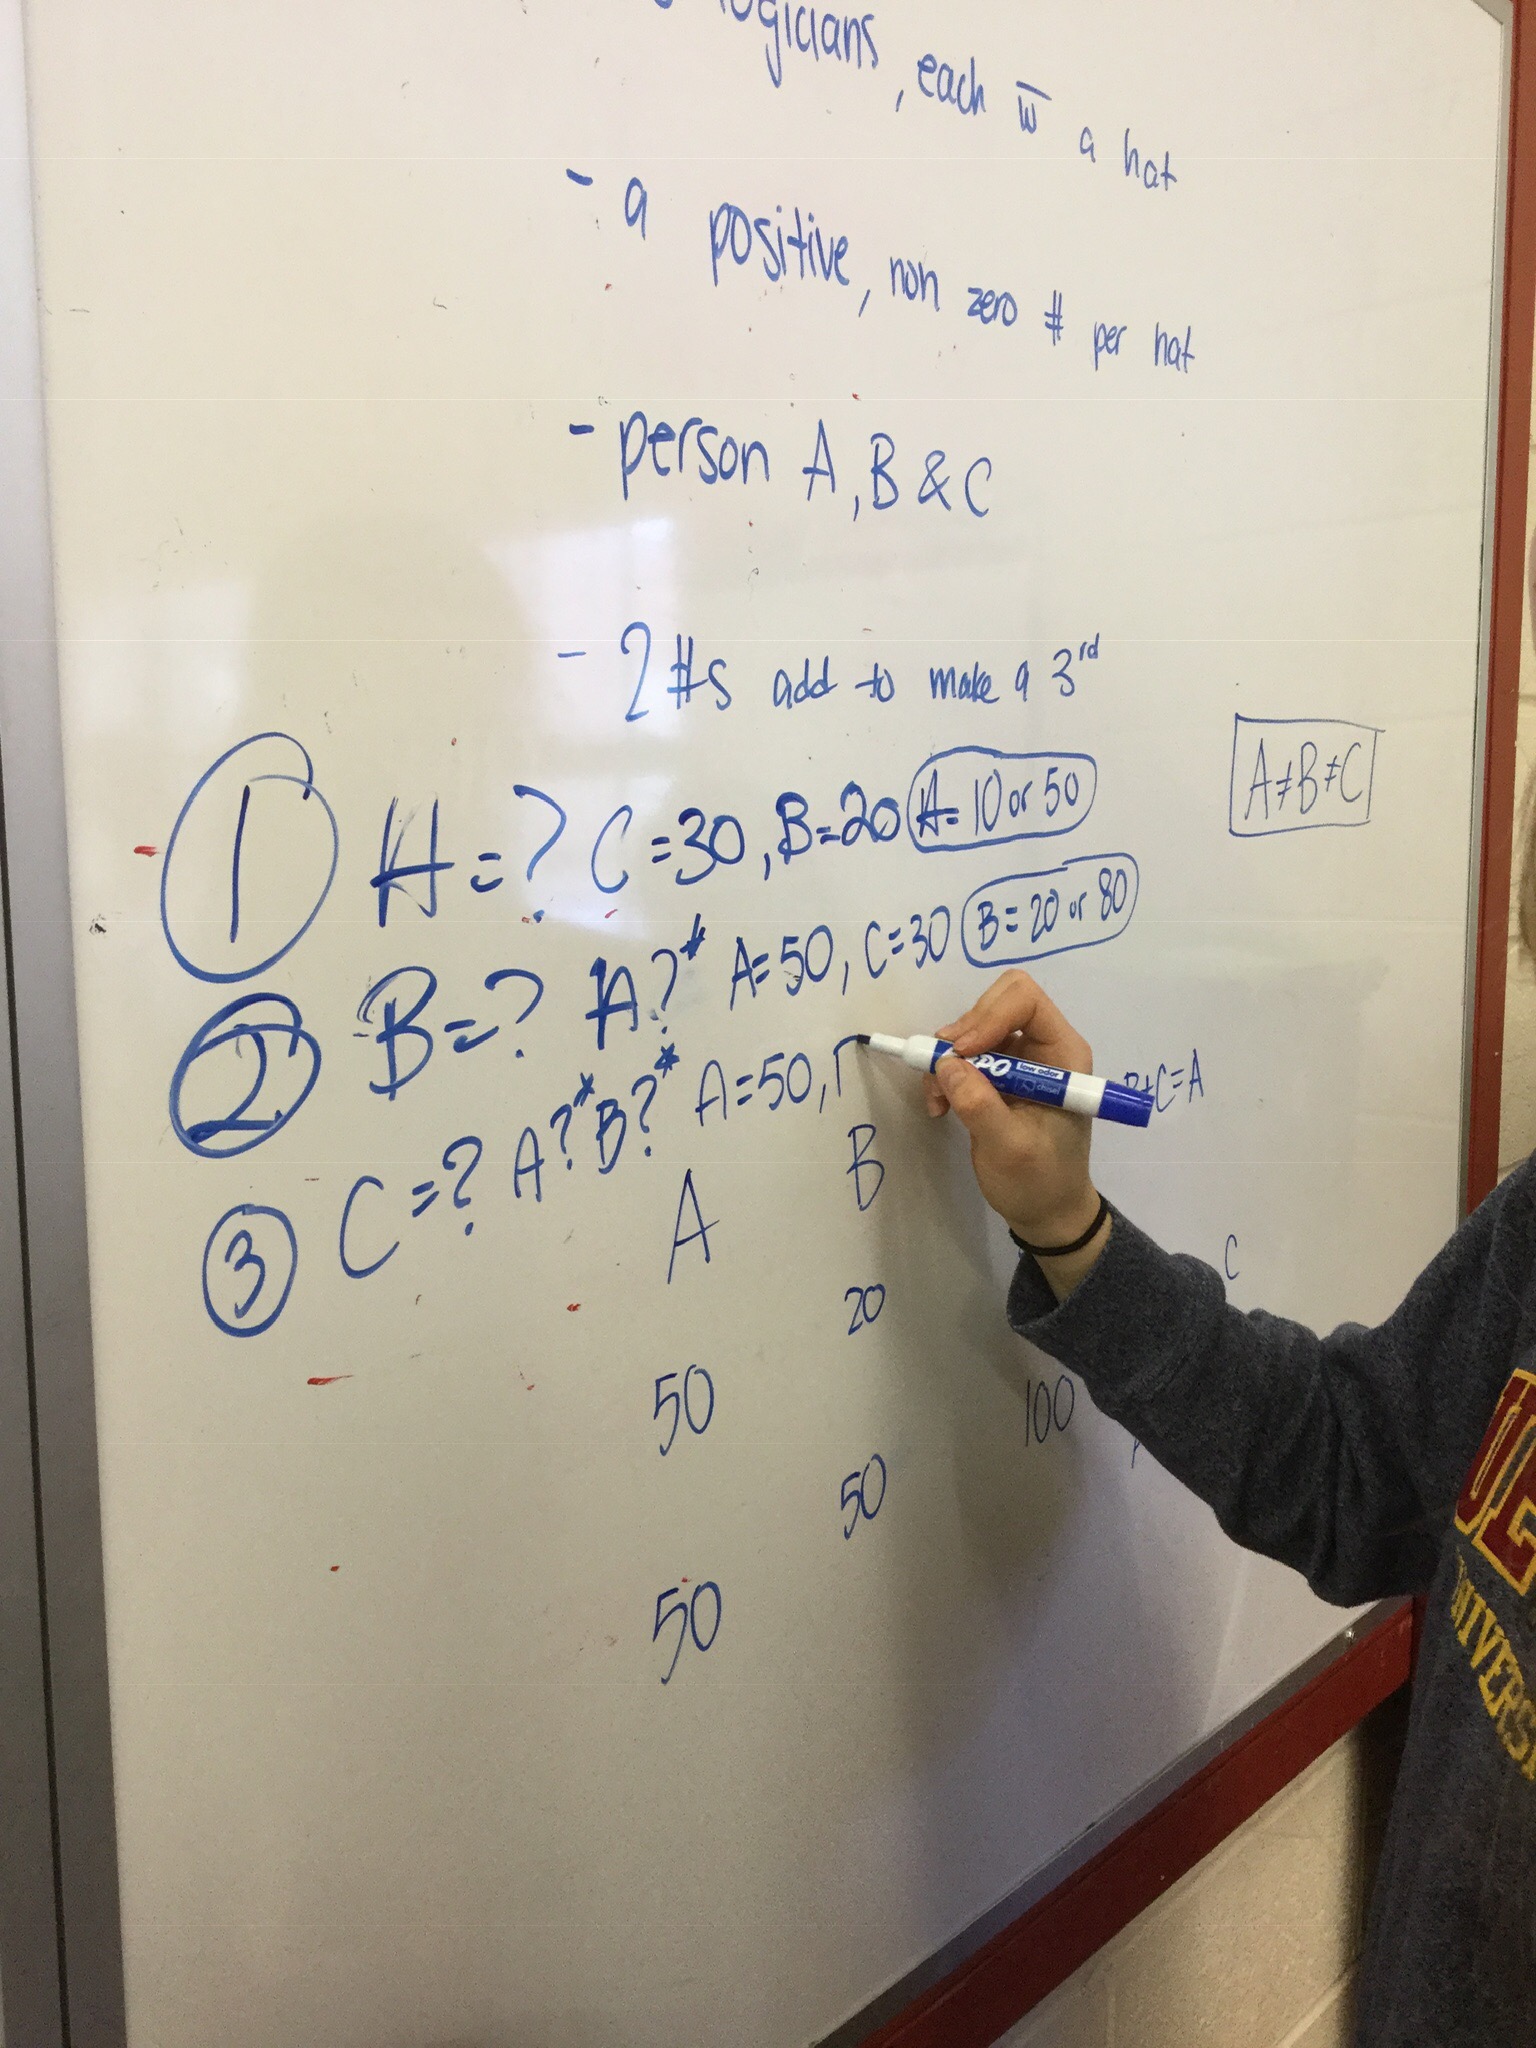 logicians, each w̅ a hat
- a positive, non zero # per hat
- person A, B & C
- 2 #s add to make a 3rd
A≠B≠C
1 A=? C=30, B=20 A=10 or 50
2 B=? A?* A=50, C=30 B=20 or 80
3 C=? A?* B?* A=50,
B+C=A
A B C
20
50 100
50
50
EXPO
low odor
chisel
UNIVERS